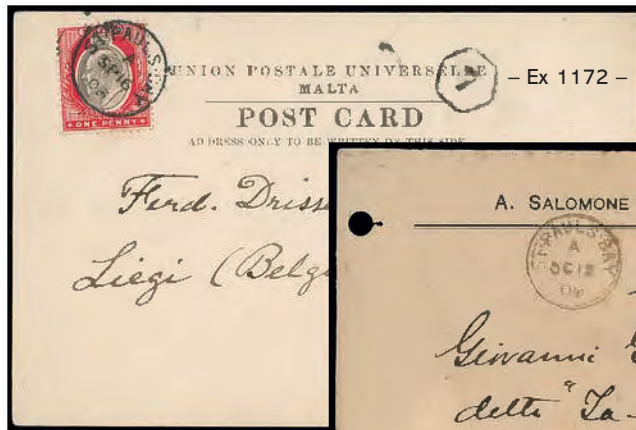 ST PAUL'S BAY
A
SP 16
ONE PENNY
UNION POSTALE UNIVERSELLE
MALTA
– Ex 1172 –
POST CARD
ADDRESS ONLY TO BE WRITTEN ON THIS SIDE
Ferd. Drisse
Liegi (Belgi
A. SALOMONE
ST. PAUL'S BAY
A
OC 12
06
Giovanni
detta "Ta-